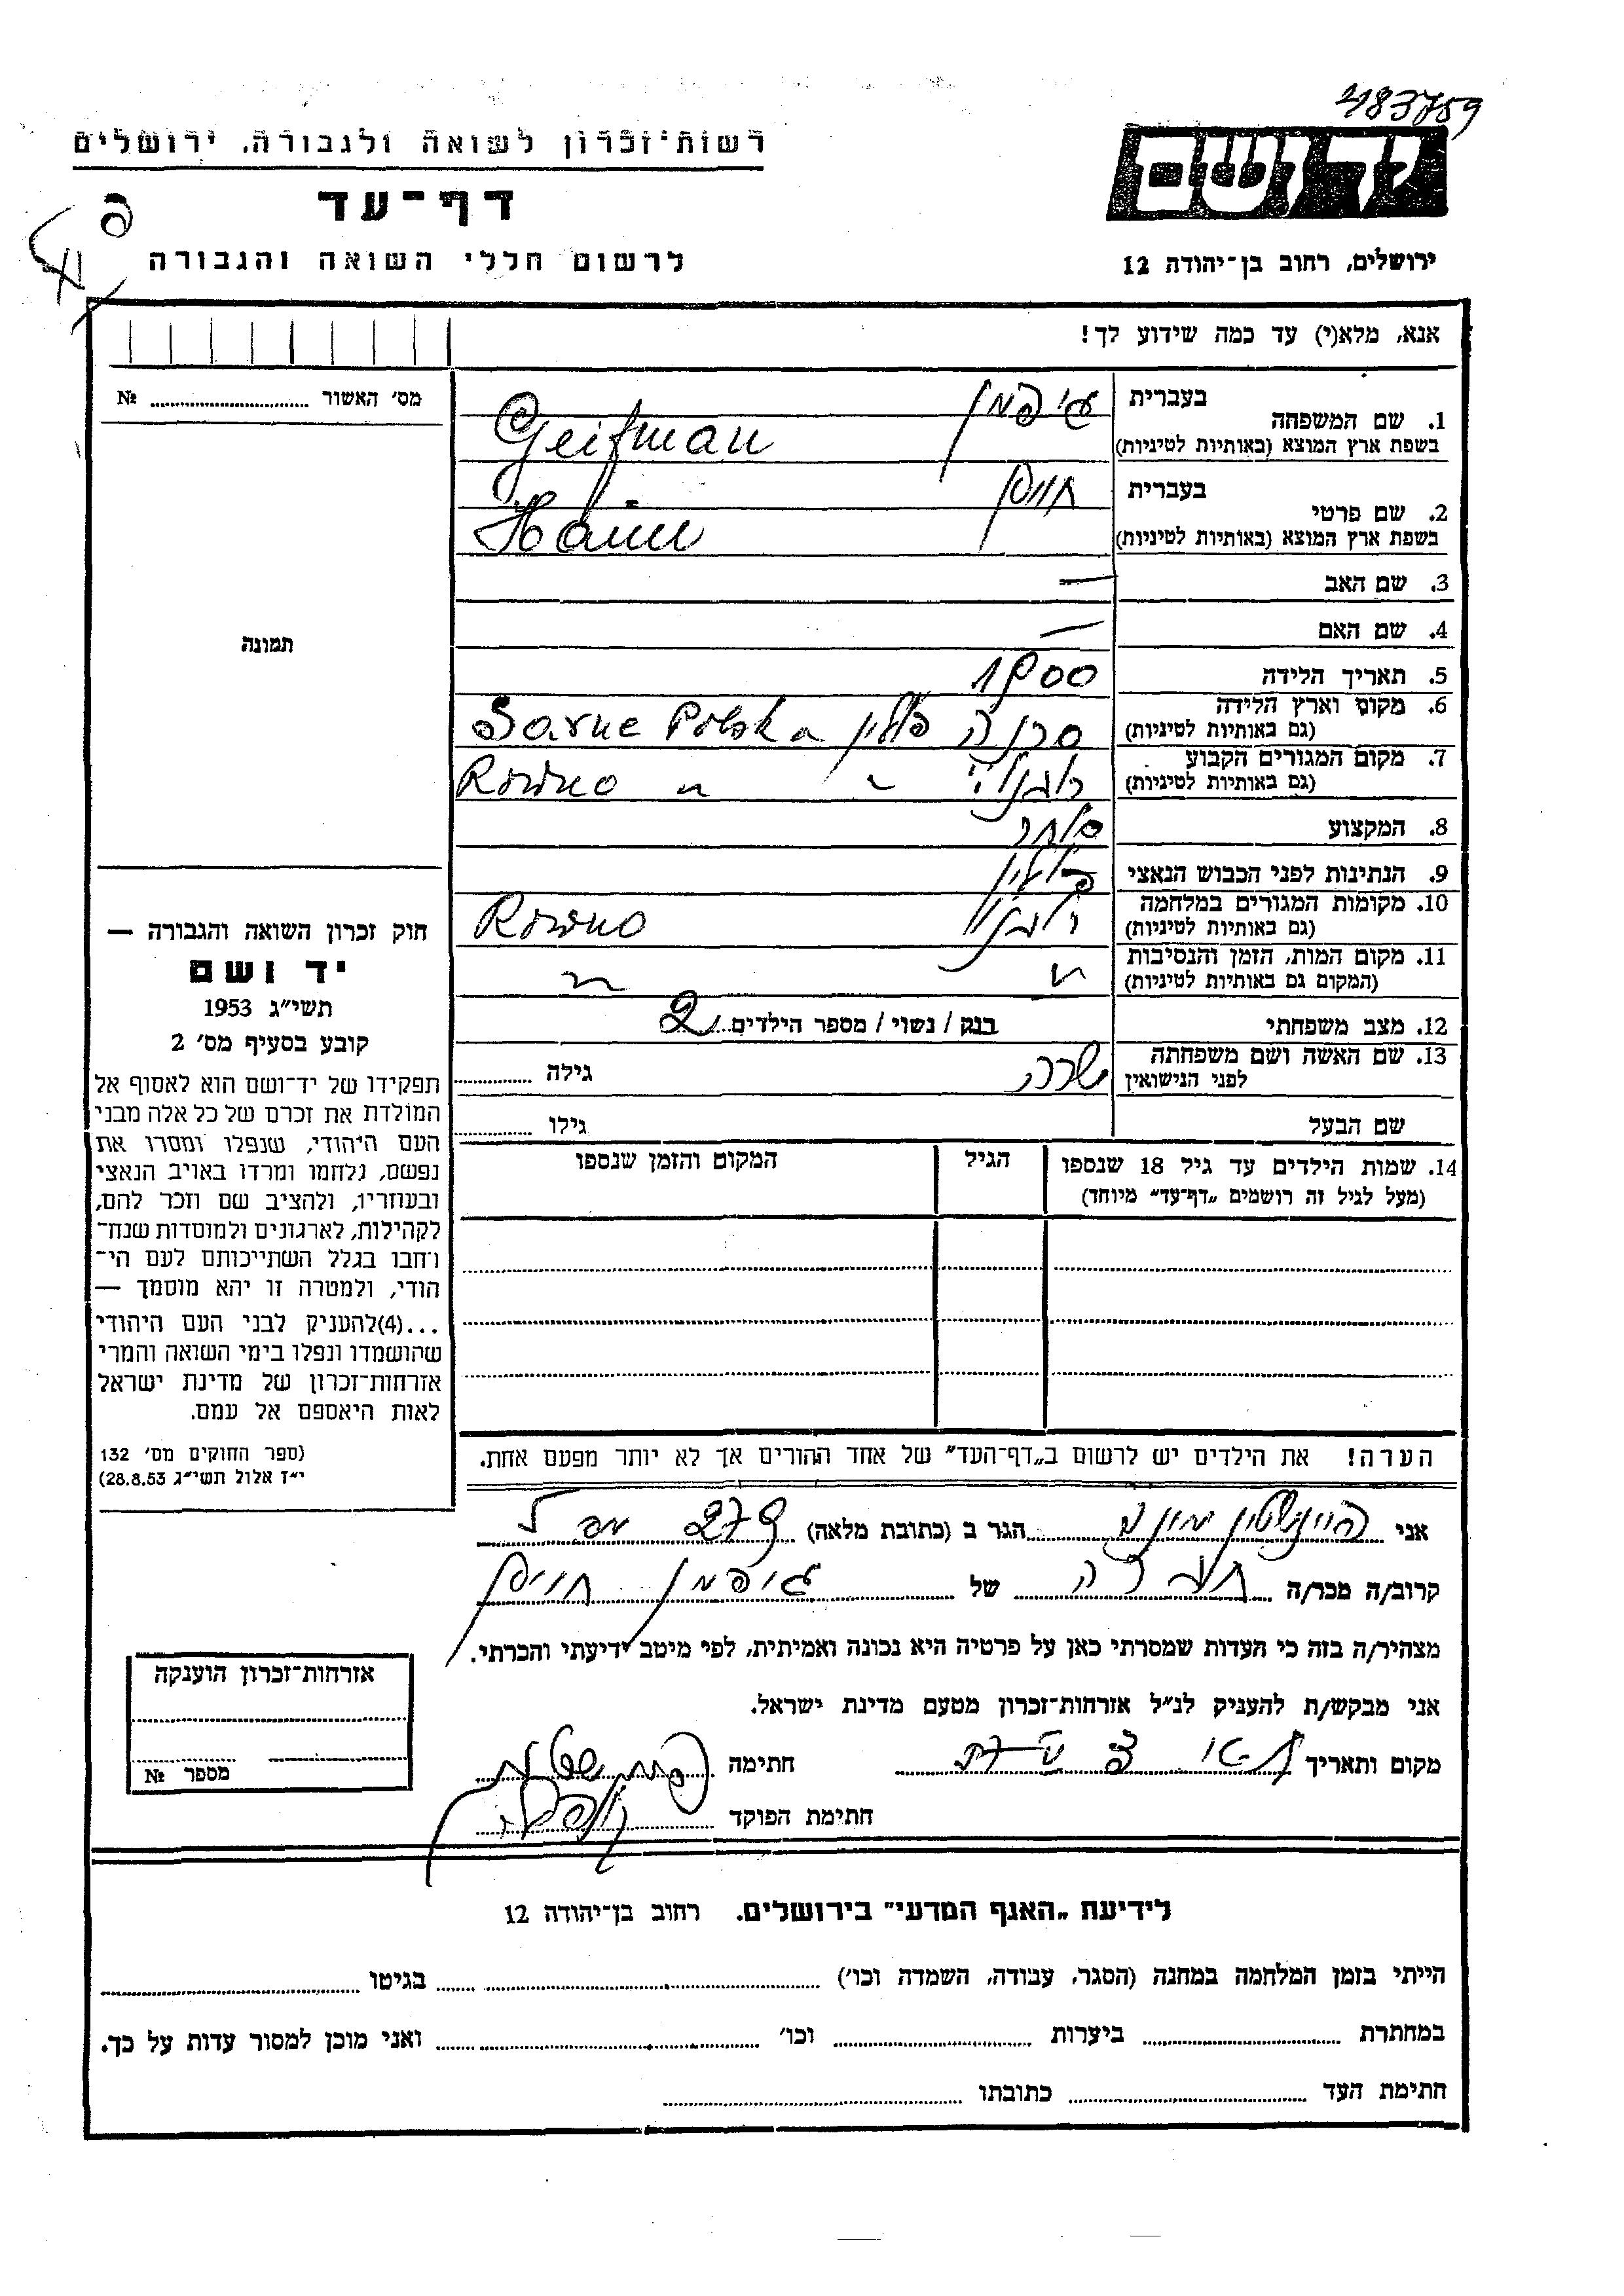 483759
רשות־זכרון לשואה ולגבורה, ירושלים
יד ושם
דף־עד
ירושלים, רחוב בן־יהודה 12
לרשום חללי השואה והגבורה
אנא, מלא(י) עד כמה שידוע לך!
מס׳ האשור № 
1. שם המשפחה
בעברית גיפמן
בשפת ארץ המוצא (באותיות לטיניות) Geifman
2. שם פרטי
בעברית חיים
בשפת ארץ המוצא (באותיות לטיניות) Haim
3. שם האב —
4. שם האם —
5. תאריך הלידה 1900
6. מקום וארץ הלידה סרנה פולין Sarne Polska
(גם באותיות לטיניות)
7. מקום המגורים הקבוע Rowno
(גם באותיות לטיניות)
8. המקצוע סוחר
9. הנתינות לפני הכבוש הנאצי
10. מקומות המגורים במלחמה Rowno
(גם באותיות לטיניות)
11. מקום המות, הזמן והנסיבות
(המקום גם באותיות לטיניות)
12. מצב משפחתי בנק / נשוי / מספר הילדים 2
13. שם האשה ושם משפחתה שרה גילה
לפני הנישואין
שם הבעל גילו
14. שמות הילדים עד גיל 18 שנספו הגיל המקום והזמן שנספו
(מעל לגיל זה רושמים „דף־עד” מיוחד)
תמונה
חוק זכרון השואה והגבורה —
יד ושם
תשי״ג 1953
קובע בסעיף מס׳ 2
תפקידו של יד־ושם הוא לאסוף אל
המולדת את זכרם של כל אלה מבני
העם היהודי, שנפלו ומסרו את
נפשם, נלחמו ומרדו באויב הנאצי
ובעוזריו, ולהציב שם וזכר להם,
לקהילות, לארגונים ולמוסדות שנח־
רבו בגלל השתייכותם לעם הי־
הודי, ולמטרה זו יהא מוסמך —
...(4)להעניק לבני העם היהודי
שהושמדו ונפלו בימי השואה והמרי
אזרחות־זכרון של מדינת ישראל
לאות היאספם אל עמם.
(ספר החוקים מס׳ 132
י״ז אלול תשי״ג 28.8.53)
הערה! את הילדים יש לרשום ב„דף־העד” של אחד ההורים אך לא יותר מפעם אחת.
אני הגר ב (כתובת מלאה)
קרוב/ה מכר/ה של גיפמן חיים
מצהיר/ה בזה כי העדות שמסרתי כאן על פרטיה היא נכונה ואמיתית, לפי מיטב ידיעתי והכרתי.
אני מבקש/ת להעניק לנ״ל אזרחות־זכרון מטעם מדינת ישראל.
מקום ותאריך חתימה
חתימת הפוקד
אזרחות־זכרון הוענקה
מספר №
לידיעת „האגף המדעי” בירושלים. רחוב בן־יהודה 12
הייתי בזמן המלחמה במחנה (הסגר, עבודה, השמדה וכו׳) בגיטו
במחתרת ביערות וכו׳ ואני מוכן למסור עדות על כך.
חתימת העד כתובתו